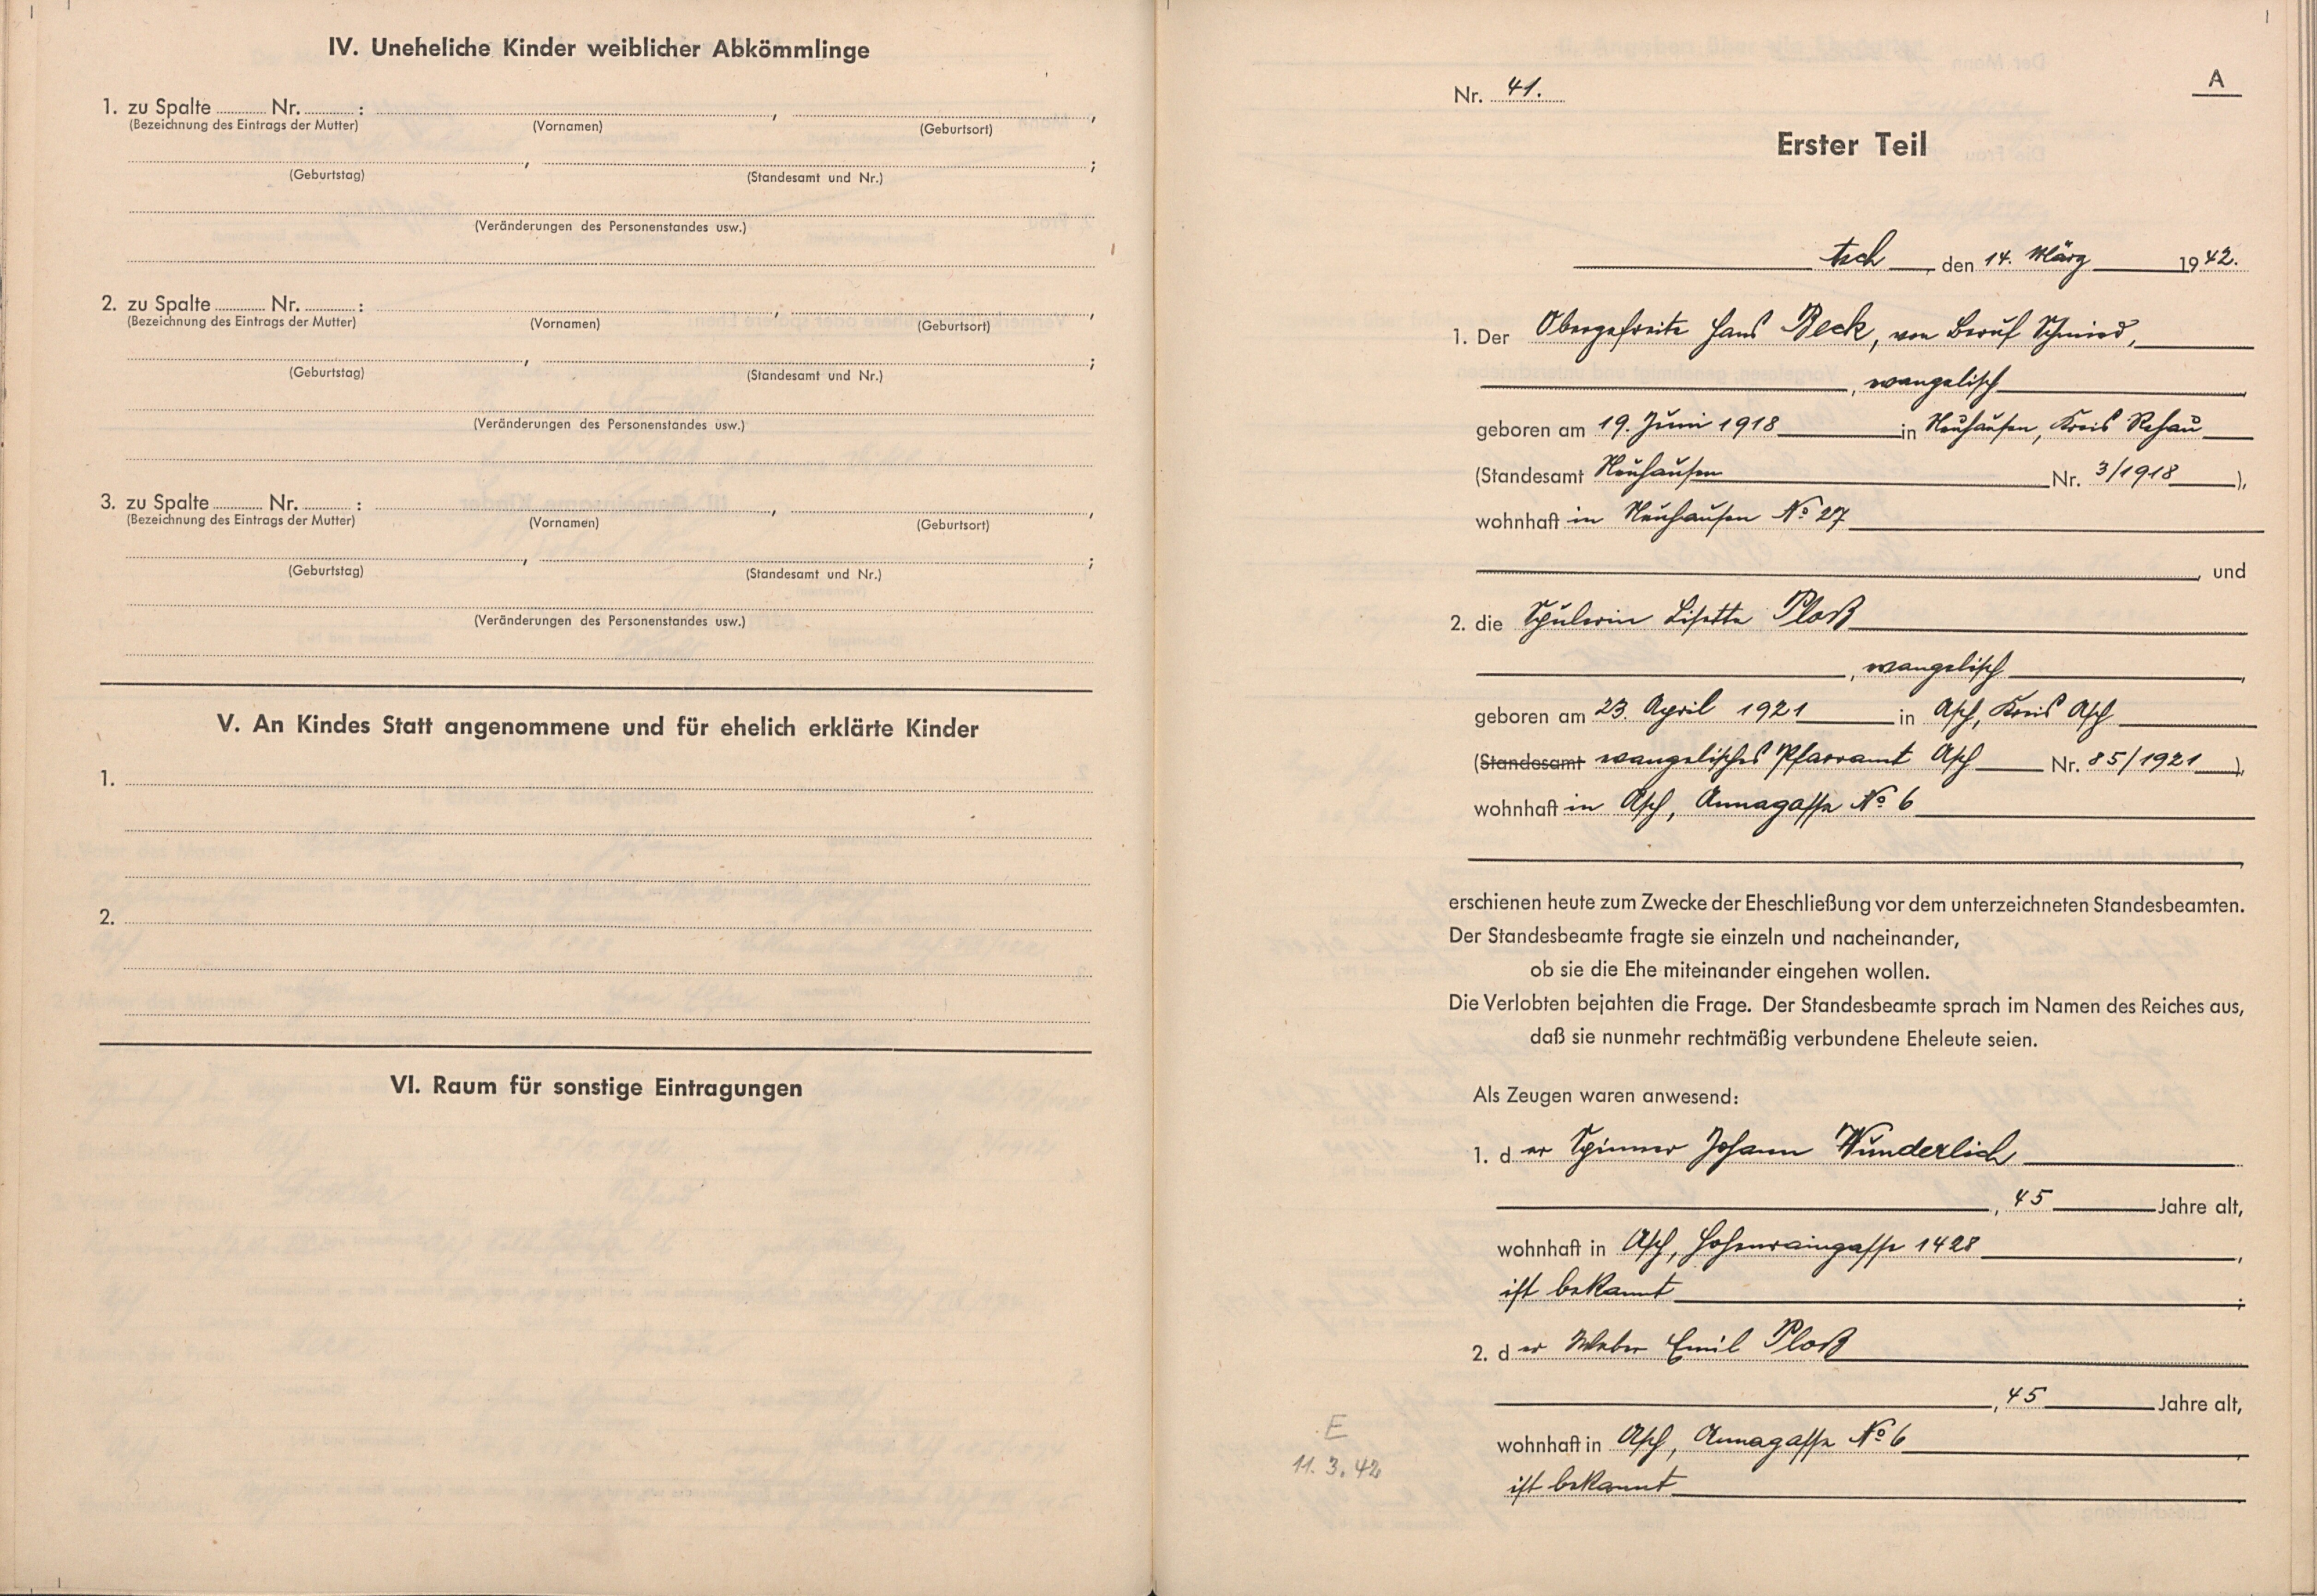 IV. Uneheliche Kinder weiblicher Abkömmlinge
1. zu Spalte ........ Nr. ........ :
(Bezeichnung des Eintrags der Mutter) (Vornamen) (Geburtsort)
(Geburtstag) (Standesamt und Nr.)
(Veränderungen des Personenstandes usw.)
2. zu Spalte ........ Nr. ........ :
(Bezeichnung des Eintrags der Mutter) (Vornamen) (Geburtsort)
(Geburtstag) (Standesamt und Nr.)
(Veränderungen des Personenstandes usw.)
3. zu Spalte ........ Nr. ........ :
(Bezeichnung des Eintrags der Mutter) (Vornamen) (Geburtsort)
(Geburtstag) (Standesamt und Nr.)
(Veränderungen des Personenstandes usw.)
V. An Kindes Statt angenommene und für ehelich erklärte Kinder
1.
2.
VI. Raum für sonstige Eintragungen
A
Nr. 41.
Erster Teil
Asch, den 14. März 1942.
1. Der Obergefreite Hans Beck, von Beruf Schmied,
, evangelisch
geboren am 19. Juni 1918 in Neuhausen, Kreis Rehau
(Standesamt Neuhausen Nr. 3/1918),
wohnhaft in Neuhausen No 27
, und
2. die Spulerin Lisette Ploß
, evangelisch,
geboren am 23. April 1921 in Asch, Kreis Asch
(Standesamt evangelisches Pfarramt Asch Nr. 85/1921),
wohnhaft in Asch, Annagasse No 6
,
erschienen heute zum Zwecke der Eheschließung vor dem unterzeichneten Standesbeamten.
Der Standesbeamte fragte sie einzeln und nacheinander,
ob sie die Ehe miteinander eingehen wollen.
Die Verlobten bejahten die Frage. Der Standesbeamte sprach im Namen des Reiches aus,
daß sie nunmehr rechtmäßig verbundene Eheleute seien.
Als Zeugen waren anwesend:
1. der Spinner Johann Wunderlich
, 45 Jahre alt,
wohnhaft in Asch, Hohenraingasse 1428,
ist bekannt;
2. der Weber Emil Ploß
, 45 Jahre alt,
wohnhaft in Asch, Annagasse No 6
ist bekannt
E
11. 3. 42